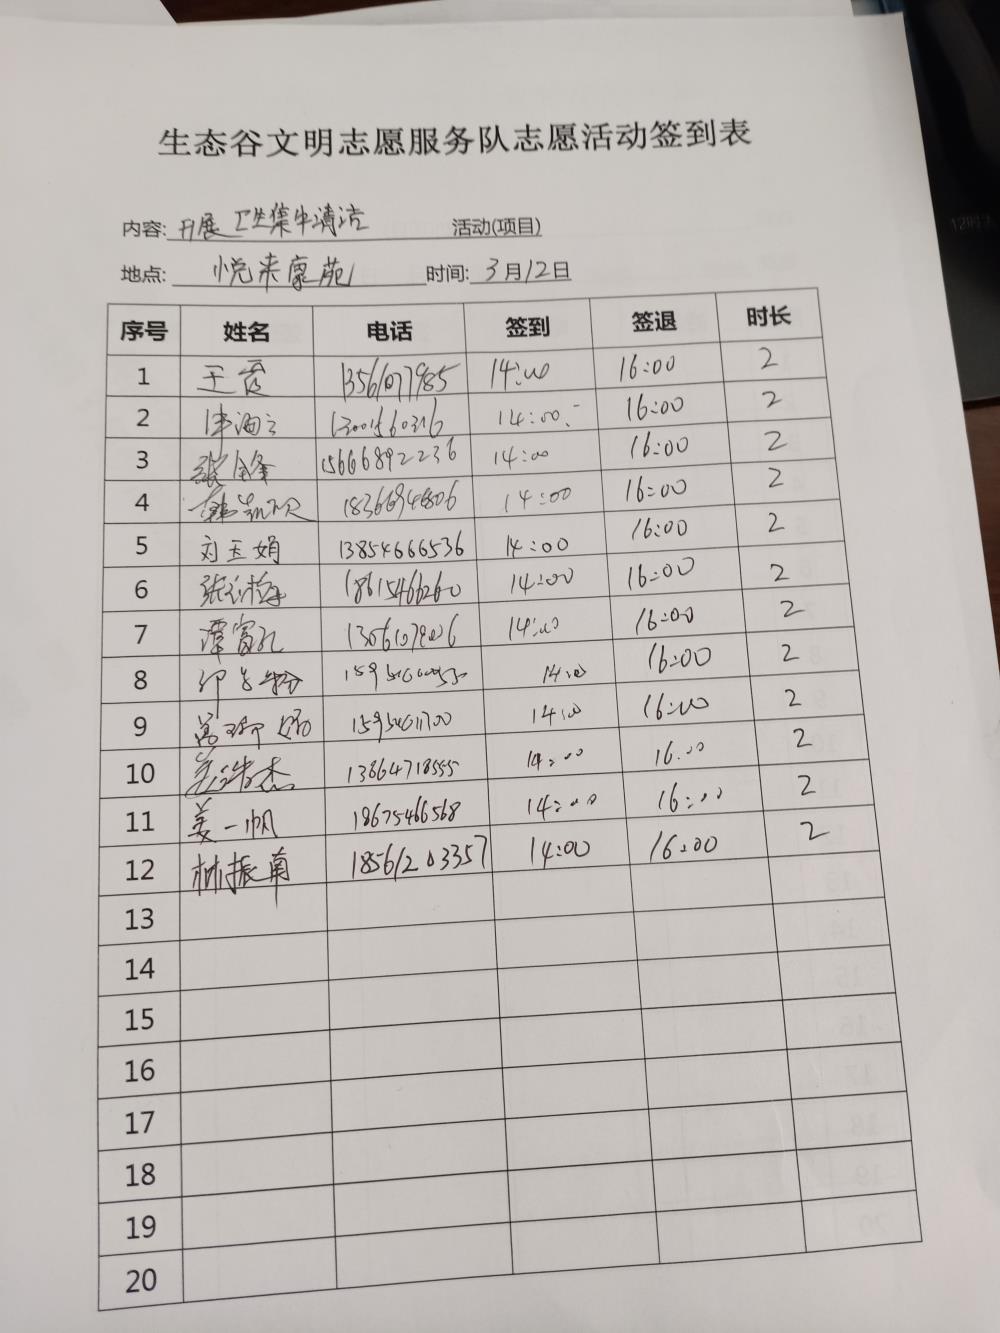 生态谷文明志愿服务队志愿活动签到表
内容: 开展卫生集中清洁 活动(项目)
地点: 悦来康苑 时间: 3月12日
序号 姓名 电话 签到 签退 时长
1 王霞 13561077985 14:00 16:00 2
2 13001560316 14:00 16:00 2
3 张金锋 15666892236 14:00 16:00 2
4 14:00 16:00 2
5 刘玉娟 13854666536 14:00 16:00 2
6 18615466260 14:00 16:00 2
7 谭富孔 14:00 16:00 2
8 14:00 16:00 2
9 15954011700 14:00 16:00 2
10 姜浩杰 13864718555 14:00 16:00 2
11 姜一帆 18675466568 14:00 16:00 2
12 林振南 18561203357 14:00 16:00 2
13
14
15
16
17
18
19
20